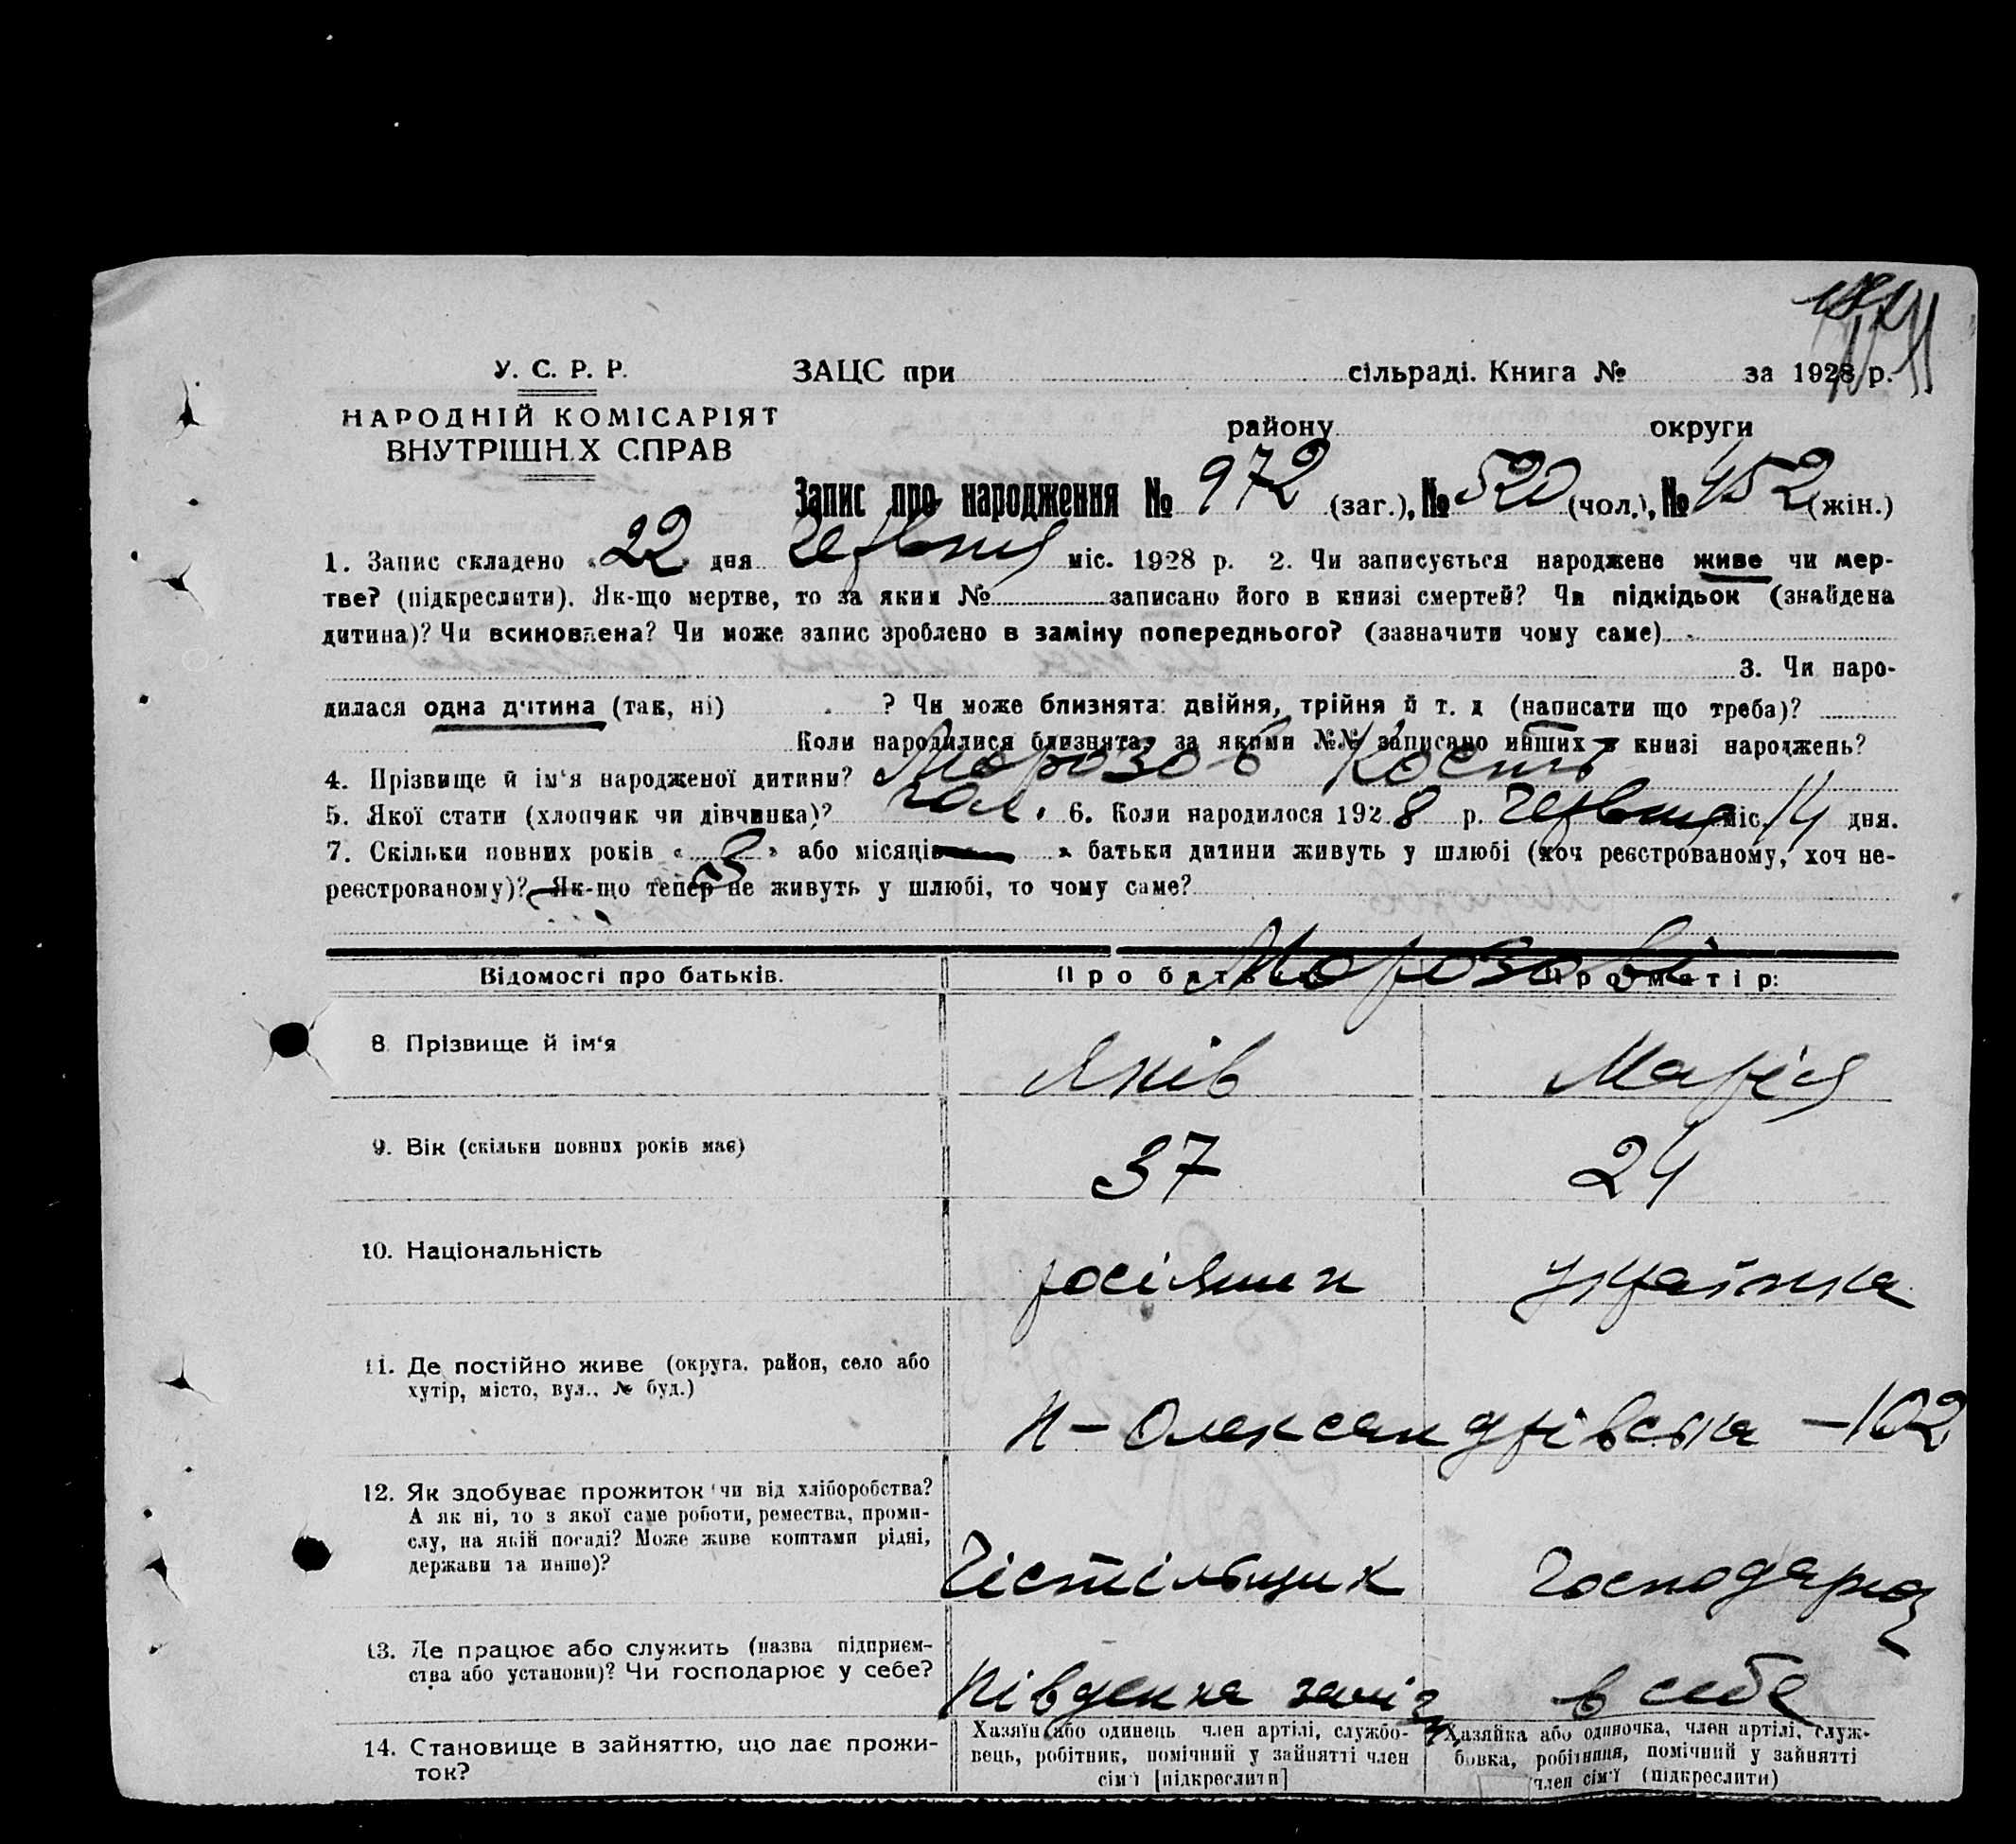 У. С. Р. Р.
НАРОДНІЙ КОМІСАРІЯТ
ВНУТРІШН.Х СПРАВ
ЗАЦС при сільраді. Книга № за 1928 р.
району округи
Запис про народження № 972 (заг.), № 520 (чол.), № 452 (жін.)
1. Запис складено «22» дня Червня міс. 1928 р. 2. Чи записується народжене живе чи мер-
тве? (підкреслити). Як-що мертве, то за яким № записано його в книзі смертей? Чи підкідьок (знайдена
дитина)? Чи всиновлена? Чи може запис зроблено в заміну попереднього? (зазначити чому саме)
3. Чи наро-
дилася одна дитина (так, ні) ? Чи може близнята: двійня, трійня й т. д (написати що треба)?
Коли народилися близнята, за якими №№ записано инших в книзі народжень?
4. Прізвище й ім'я народженої дитини? Морозов Кость
5. Якої стати (хлопчик чи дівчинка)? чол. 6. Коли народилося 1928 р. Червня міс. 14 дня.
7. Скільки повних років «3» або місяців « — » батьки дитини живуть у шлюбі (хоч реєстрованому, хоч не-
реєстрованому)? Як-що тепер не живуть у шлюбі, то чому саме?
Відомості про батьків. Про батька Про матір:
Морозови
8 Прізвище й ім'я Яків Марія
9. Вік (скільки повних років має) 37 24
10. Національність росіянин українка
11. Де постійно живе (округа, район, село або
хутір, місто, вул., № буд.)
Н-Олександрівська -102
12. Як здобуває прожиток чи від хліборобства?
А як ні, то з якої саме роботи, ремества, проми-
слу, на якій посаді? Може живе коштами рідні,
держави та инше)?
Чістільщик Господарка
13. Де працює або служить (назва підприєм-
ства або установи)? Чи господарює у себе?
Південна заліз в себе
14. Становище в зайняттю, що дає прожи-
ток?
Хазяїн або одинець член артілі, службо-
вець, робітник, помічний у зайнятті член
сім'ї [підкреслити]
Хазяйка або одиночка, член артілі, служ-
бовка, робітниця, помічний у зайнятті
член сім'ї (підкреслити)